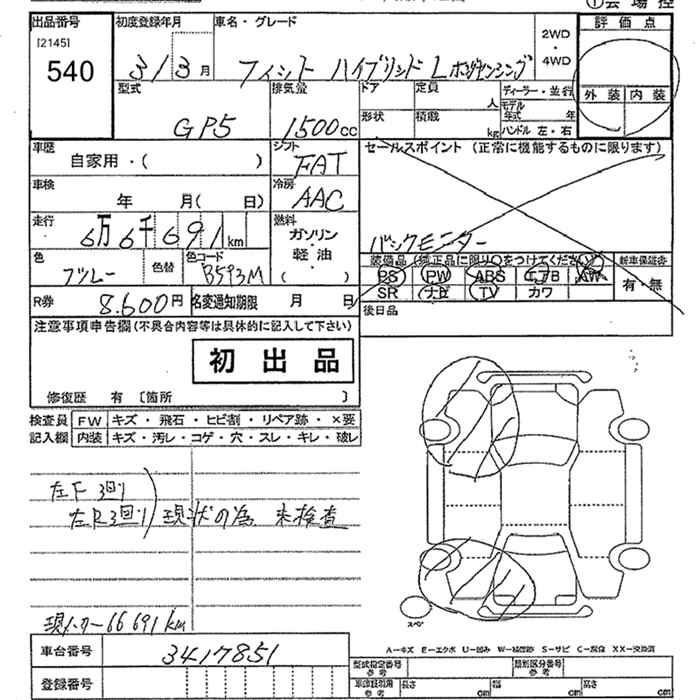 ①会場控
出品番号 初度登録年月 車名・グレード 評価点
[2145]
540
31/3月 フィット ハイブリッド L ホンダセンシング
2WD
・
4WD
外装 内装
型式 排気量 ドア 定員 人 ディーラー・並行
GP5 1500cc 形状 積載 kg モデル年式 年
ハンドル 左・右
車歴 自家用・( ) シフト FAT
セールスポイント (正常に機能するものに限ります)
車検 年 月( 日) 冷房 AAC
走行 6万6千691km 燃料 ガソリン・軽油・( )
バックモニター
色 ブルー 色替 色コード B593M
装備品 (純正品に限り○をつけてください) 新車保証書
PS PW ABS エアB AW 有・無
SR ナビ TV カワ
R券 8.600円 名変通知期限 月 日
後日品
注意事項申告欄(不具合内容等は具体的に記入して下さい)
初出品
修復歴 有 〔箇所 〕
検査員 FW キズ・飛石・ヒビ割・リペア跡・×要
記入欄 内装 キズ・汚レ・コゲ・穴・スレ・キレ・破レ
左F 3回り
左R3回り)現状の為 未検査
現メーター66691km
スペア
A-キズ E-エクボ U-凹み W-補修跡 S-サビ C-腐食 XX-交換済
車台番号 3417851
登録番号
型式指定番号 参考 類別区分番号 参考
車検証引用 参考 長さ cm 幅 cm 高さ cm